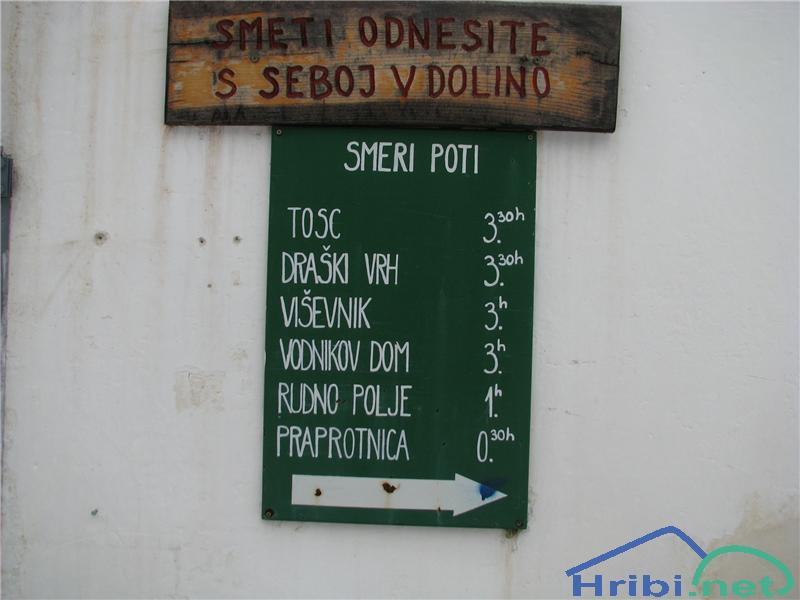 SMETI ODNESITE
S SEBOJ V DOLINO
SMERI POTI
TOSC 3.30h
DRAŠKI VRH 3.30h
VIŠEVNIK 3.h
VODNIKOV DOM 3.h
RUDNO POLJE 1.h
PRAPROTNICA 0.30h
Hribi.net